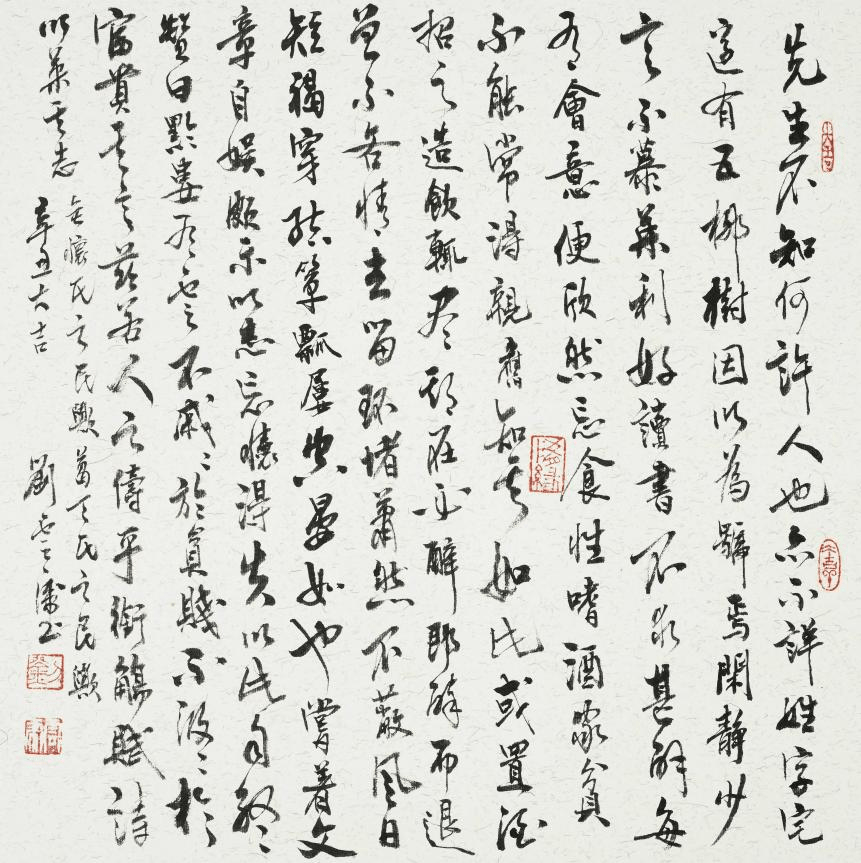 先生不知何許人也亦不詳姓字宅
邊有五柳樹因以為號焉閑靜少
言不慕榮利好讀書不求甚解每
有會意便欣然忘食性嗜酒家貧
不能常得親舊知其如此或置酒
招之造飲輒盡期在必醉既醉而退
曾不吝情去留環堵蕭然不蔽風日
短褐穿結簞瓢屢空晏如也嘗著文
章自娛頗示以志忘懷得失以此自終
贊曰黔婁有言不戚〻於貧賤不汲〻於
富貴其言茲若人之儔乎銜觴賦詩
以樂其志
無懷氏之民歟葛天氏之民歟
辛丑大吉
劉雲